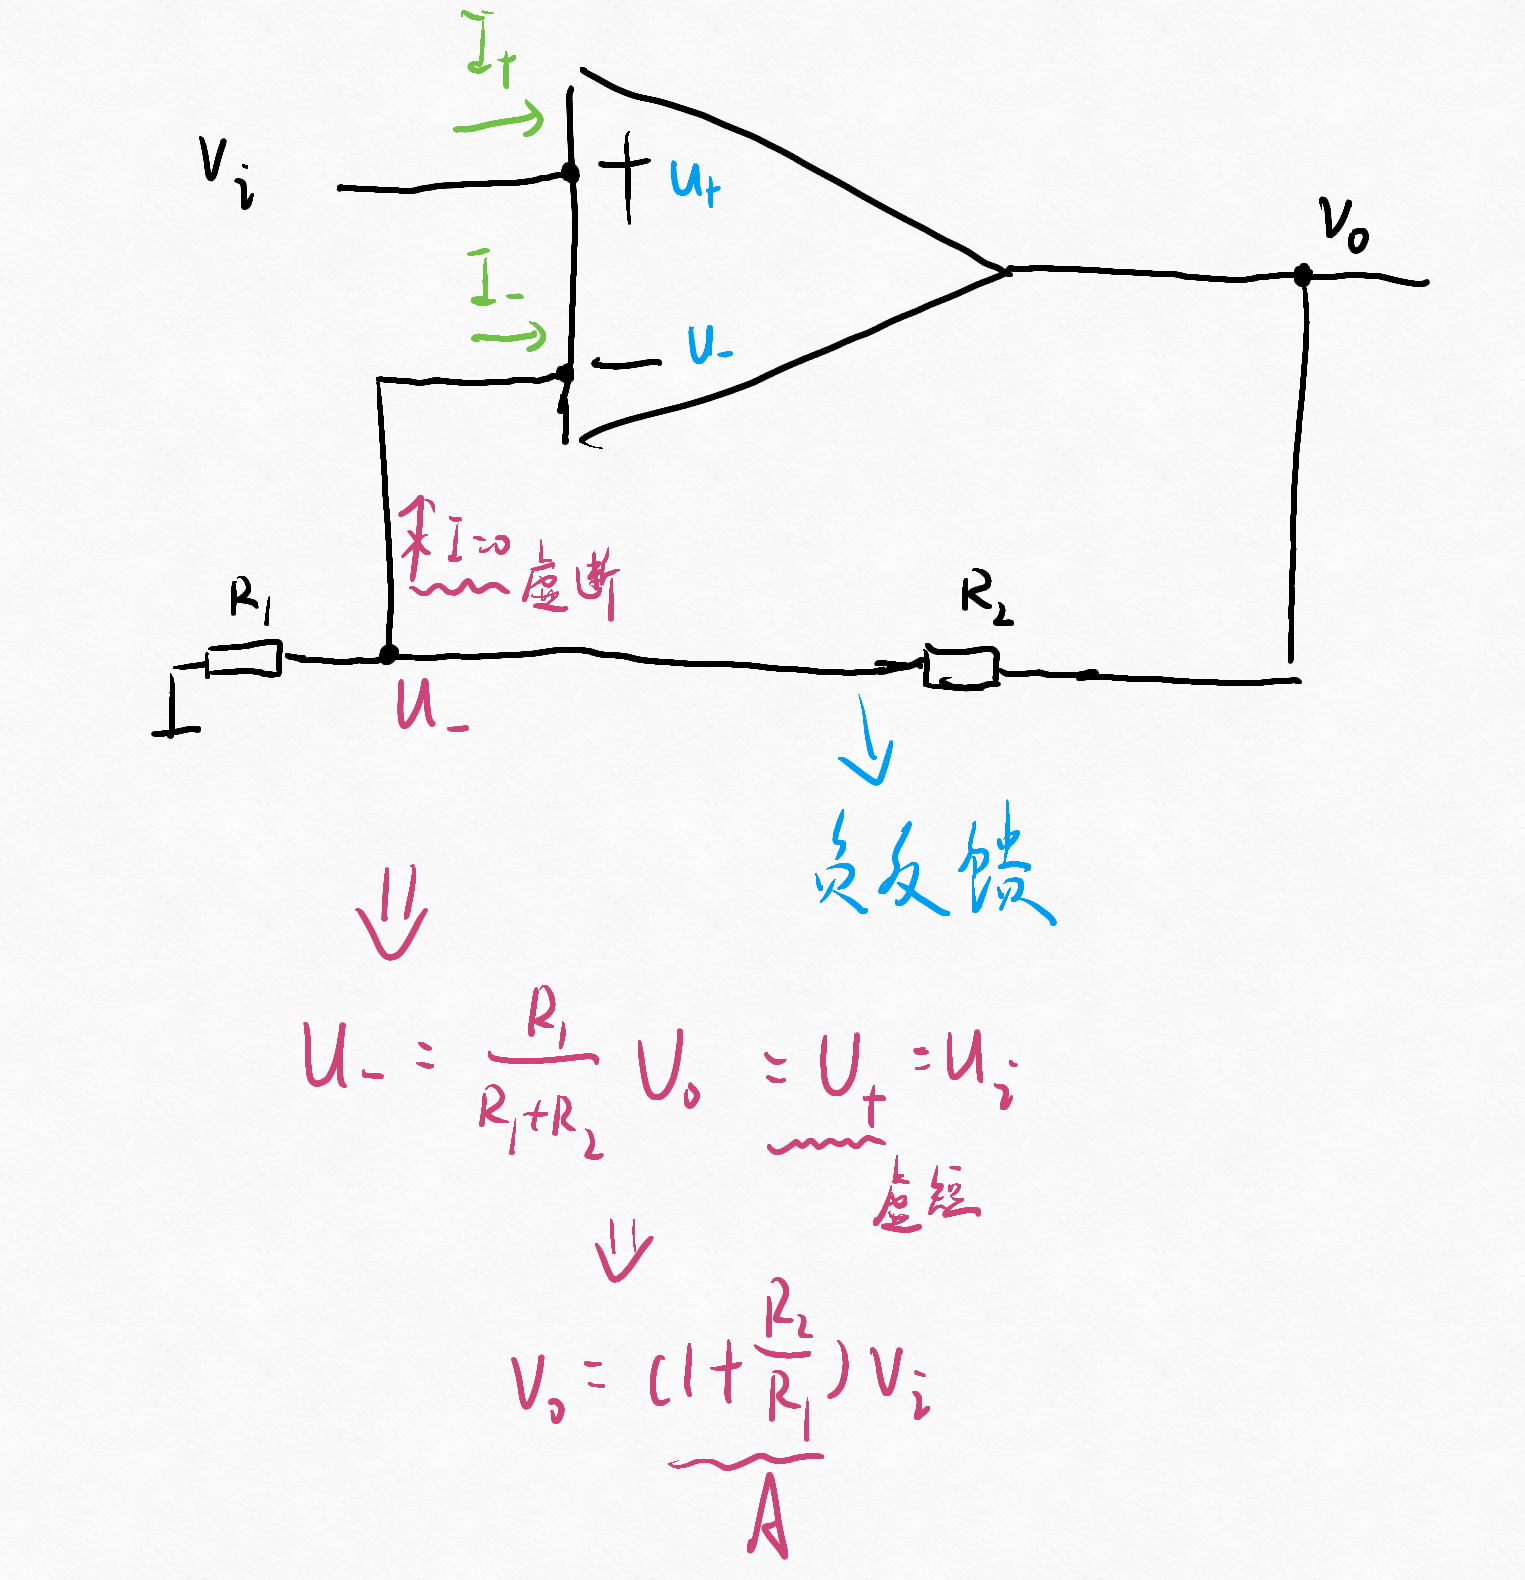 I+
Vi
+ u+
Vo
I-
- u-
I=0 虚断
R1
R2
U-
负反馈
U- = R1/(R1+R2) Uo = U+ = Ui
虚短
Vo = (1+R2/R1) Vi
A